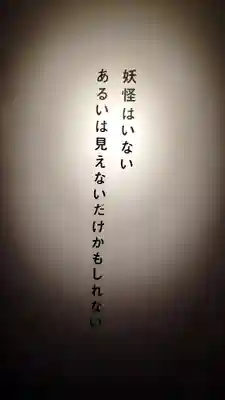 妖怪はいない
あるいは見えないだけかもしれない